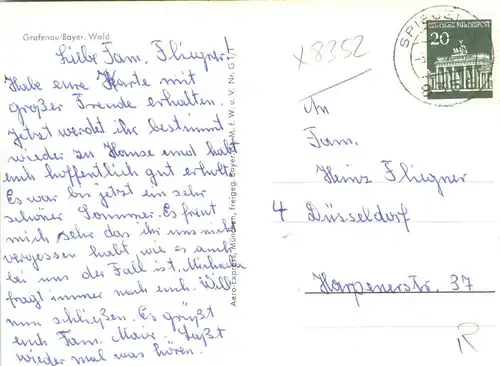 Grafenau/Bayer. Wald
Liebe Fam. Fliegner!
Habe eure Karte mit
großer Freude erhalten.
Jetzt werdet ihr bestimmt
wieder zu Hause und habt
euch hoffentlich gut erholt.
Es war bis jetzt ein sehr
schöner Sommer. Es freut
mich sehr das ihr uns nicht
vergessen habt, wie es auch
bei uns der Fall ist. Michaela
fragt immer nach euch. Will
nun schließen. Es grüßt
euch Fam. Mair. Laßt
wieder mal was hören.
Aero-Express, München, Freigeg. Bayer. St. M. f. W. u. V. Nr. G
X8352
SPIEGEL
20
DEUTSCHE BUNDESPOST
An
Fam.
Heinz Fliegner
4 Düsseldorf
Harpenerstr. 37
R